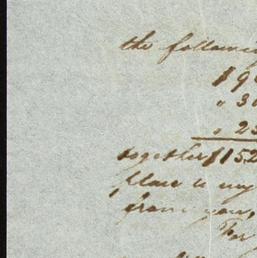 the following
$9
" 30
" 25
together $152
place to my
from you,
For